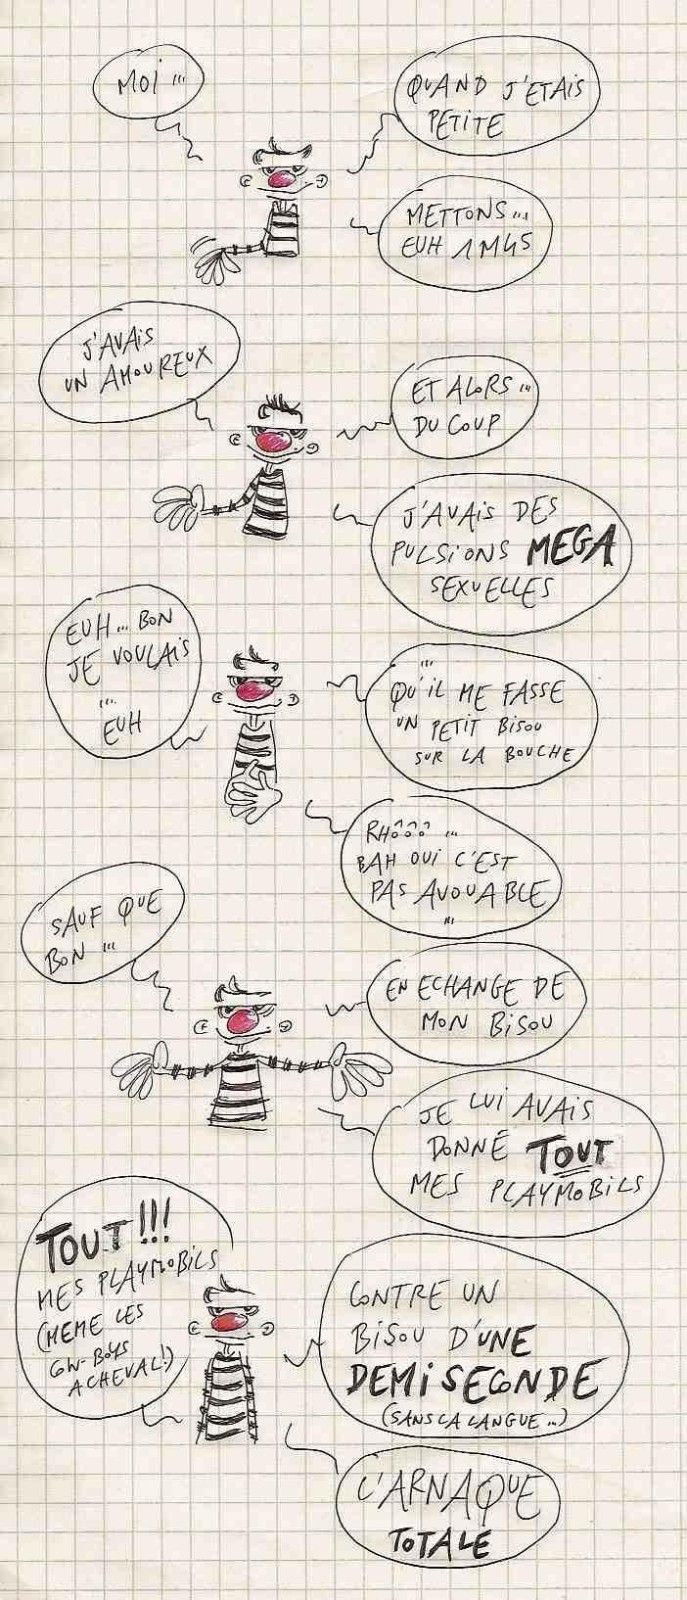 MOI ...
QUAND J'ETAIS
PETITE
METTONS ...
EUH 1M45
J'AVAIS
UN AMOUREUX
ET ALORS ...
DU COUP
J'AVAIS DES
PULSIONS MEGA
SEXUELLES
EUH ... BON
JE VOULAIS
...
EUH
...
QU'IL ME FASSE
UN PETIT BISOU
SUR LA BOUCHE
RHÔÔÔ ...
BAH OUI C'EST
PAS AVOUABLE
...
SAUF QUE
BON ...
EN ECHANGE DE
MON BISOU
JE LUI AVAIS
DONNÉ TOUT
MES PLAYMOBILS
TOUT!!!
MES PLAYMOBILS
(MEME LES
COW-BOYS
A CHEVAL!)
CONTRE UN
BISOU D'UNE
DEMI SECONDE
(SANS LA LANGUE ...)
L'ARNAQUE
TOTALE